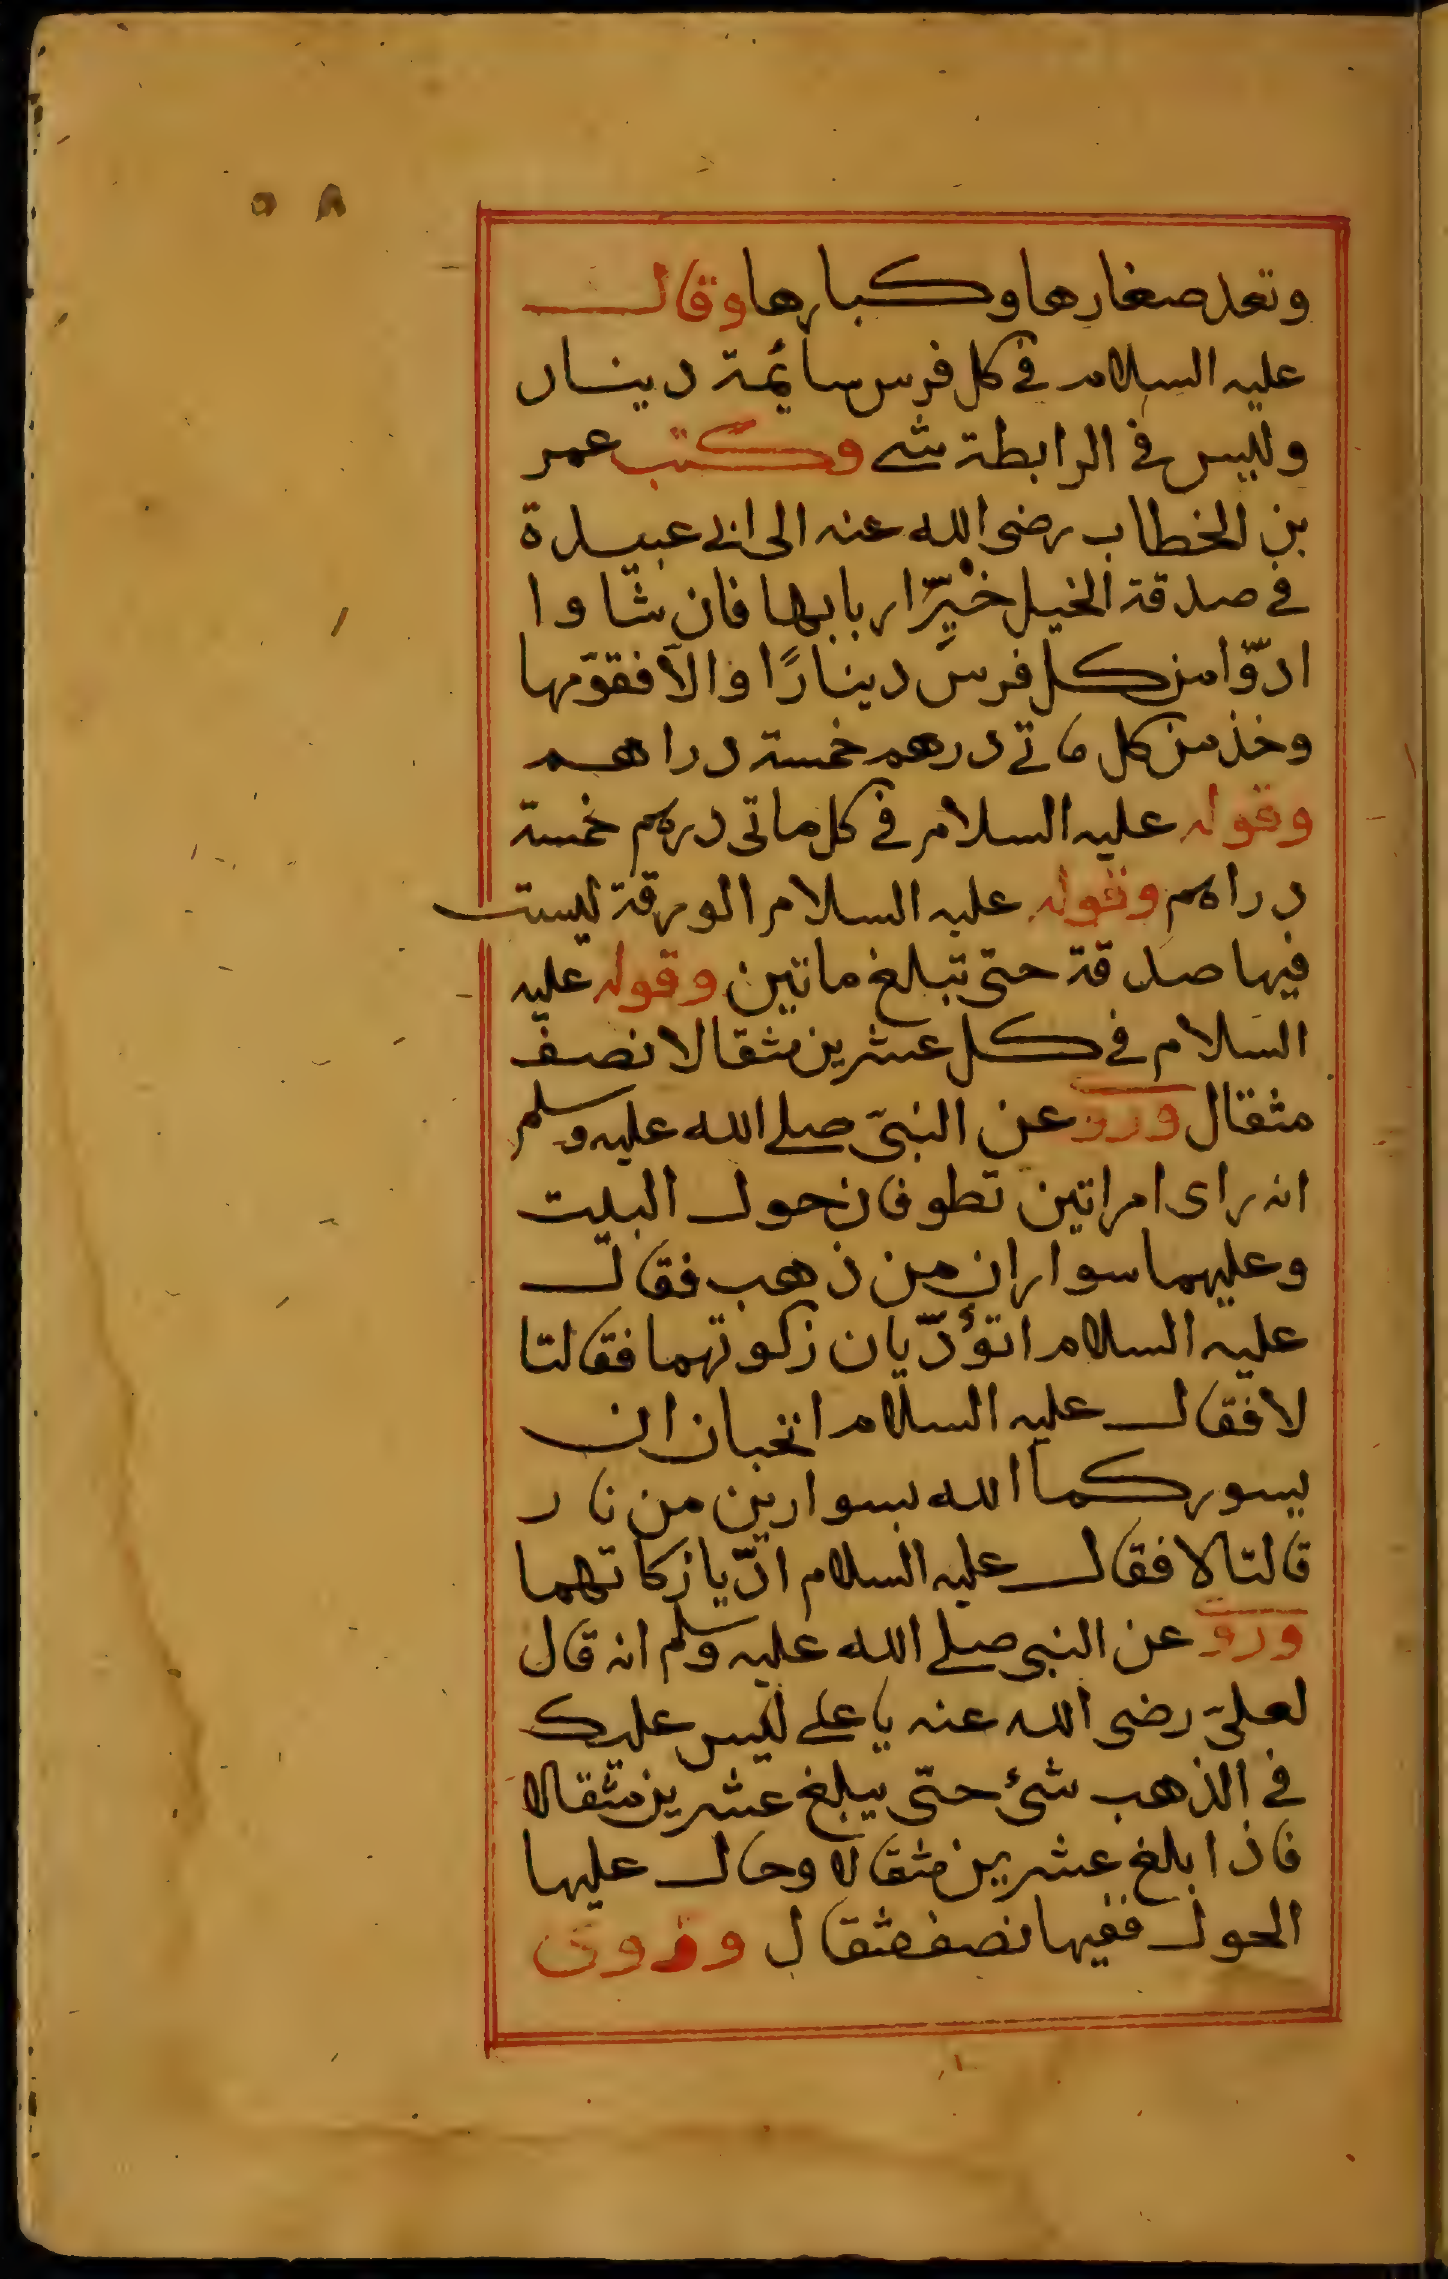 ٥٨
وتعد صغارها وكبارها وقال
عليه السلام في كل فرس سائمة دينار
وليس في الرابطة شي وكتب عمر
بن الخطاب رضى الله عنه الى ابي عبيدة
في صدقة الخيل خيّر اربابها فان شاوا
ادّوا من كل فرس دينارًا والا فقوّمها
وخذ من كل ماتي درهم خمسة دراهم
وقوله عليه السلام في كل ماتى درهم خمسة
دراهم وقوله عليه السلام الورقة ليست
فيها صدقة حتى تبلغ ماتين وقوله عليه
السلام في كل عشرين مثقالا نصف
مثقال وروى عن النبىّ صلى الله عليه وسلم
انه راى امراتين تطوفان حول البيت
وعليهما سواران من ذهب فقال
عليه السلام اتؤدّيان زكوتهما فقالتا
لا فقال عليه السلام اتحبان ان
يسوركما الله بسوارين من نار
قالتا لا فقال عليه السلام ادّيا زكاتهما
وروى عن النبى صلى الله عليه وسلم انه قال
لعلىّ رضى الله عنه يا على ليس عليك
في الذهب شئ حتى يبلغ عشرين مثقالا
فاذا بلغ عشرين مثقالا وحال عليها
الحول ففيها نصف مثقال وروى